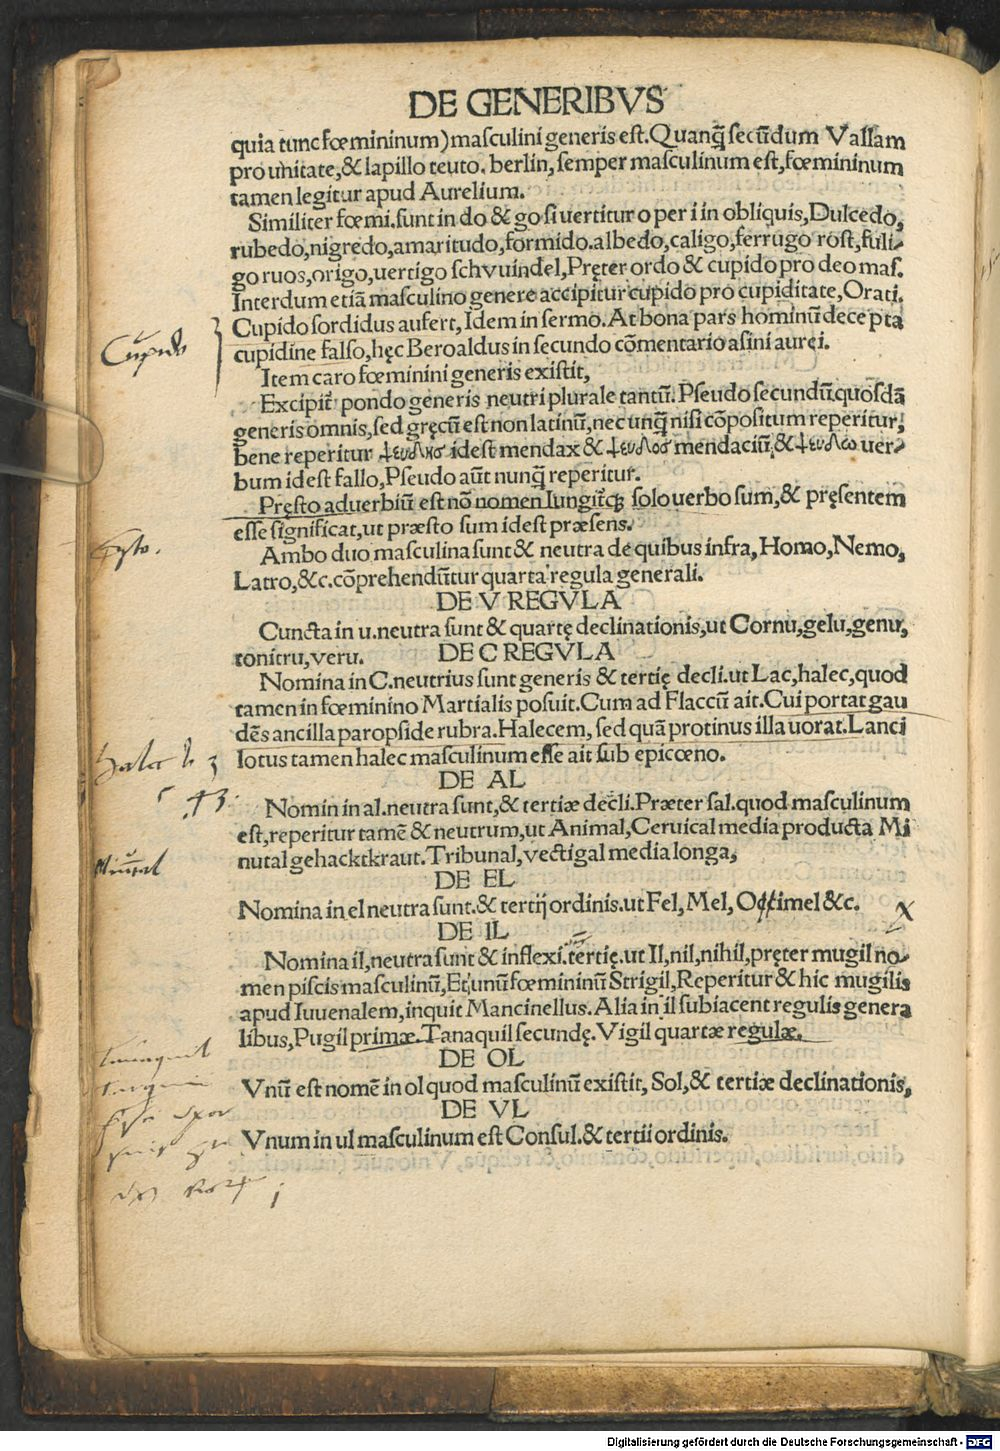 DE GENERIBVS
quia tunc fœmininum) masculini generis est. Quanq̃ secūdum Vallam
pro unitate, & lapillo teuto. berlin, semper masculinum est, fœmininum
tamen legitur apud Aurelium.
Similiter fœmi. sunt in do & go si uertitur o per i in obliquis, Dulcedo,
rubedo, nigredo, amaritudo, formido. albedo, caligo, ferrugo rost, fuli-
go ruos, origo, uertigo schvuindel, Pręter ordo & cupido pro deo mas.
Interdum etiā masculino genere accipitur cupido pro cupiditate, Orati.
Cupido sordidus aufert, Idem in sermo. At bona pars hominū decepta
cupidine falso, hęc Beroaldus in secundo cōmentario asini aurei.
Cupido
Item caro fœminini generis existit,
Excipit̃ pondo generis neutri plurale tantū. Pseudo secundū quosdā
generis omnis, sed gręcū est non latinū, nec unq̃ nisi cōpositum reperitur,
bene reperitur ψευδησ idest mendax & ψευδοσ mendaciū, & ψευδω uer-
bum idest fallo, Pseudo aūt nunq̃ reperitur.
Pręsto aduerbiū est nō nomen Iungit̃q; solo uerbo sum, & pręsentem
esse significat, ut præsto sum idest præsens.
Ambo duo masculina sunt & neutra de quibus infra, Homo, Nemo,
Latro, &c. cōprehendūtur quarta regula generali.
DE V REGVLA
Cuncta in u. neutra sunt & quartę declinationis, ut Cornu, gelu, genu,
tonitru, veru. DE C REGVLA
Nomina in C. neutrius sunt generis & tertię decli. ut Lac, halec, quod
tamen in fœminino Martialis posuit. Cum ad Flaccū ait. Cui portat gau
dēs ancilla paropside rubra. Halecem, sed quā protinus illa uorat. Lanci
lotus tamen halec masculinum esse ait sub epicœno.
DE AL
Nomin in al. neutra sunt, & tertiæ decli. Præter sal. quod masculinum
est, reperitur tamē & neutrum, ut Animal, Ceruical media producta Mi
nutal gehacktkraut. Tribunal, vectigal media longa,
DE EL
Nomina in el neutra sunt. & tertij ordinis. ut Fel, Mel, Oximel &c. X
DE IL
Nomina il, neutra sunt & inflexi. tertię. ut Il, nil, nihil, pręter mugil no-
men piscis masculinū, Et unū fœmininū Strigil, Reperitur & hic mugilis
apud Iuuenalem, inquit Mancinellus. Alia in il subiacent regulis genera
libus, Pugil primæ. Tanaquil secundę. Vigil quartæ regulæ,
DE OL
Vnū est nomē in ol quod masculinū existit, Sol, & tertiæ declinationis,
DE VL
Vnum in ul masculinum est Consul. & tertii ordinis.
Digitalisierung gefördert durch die Deutsche Forschungsgemeinschaft - DFG